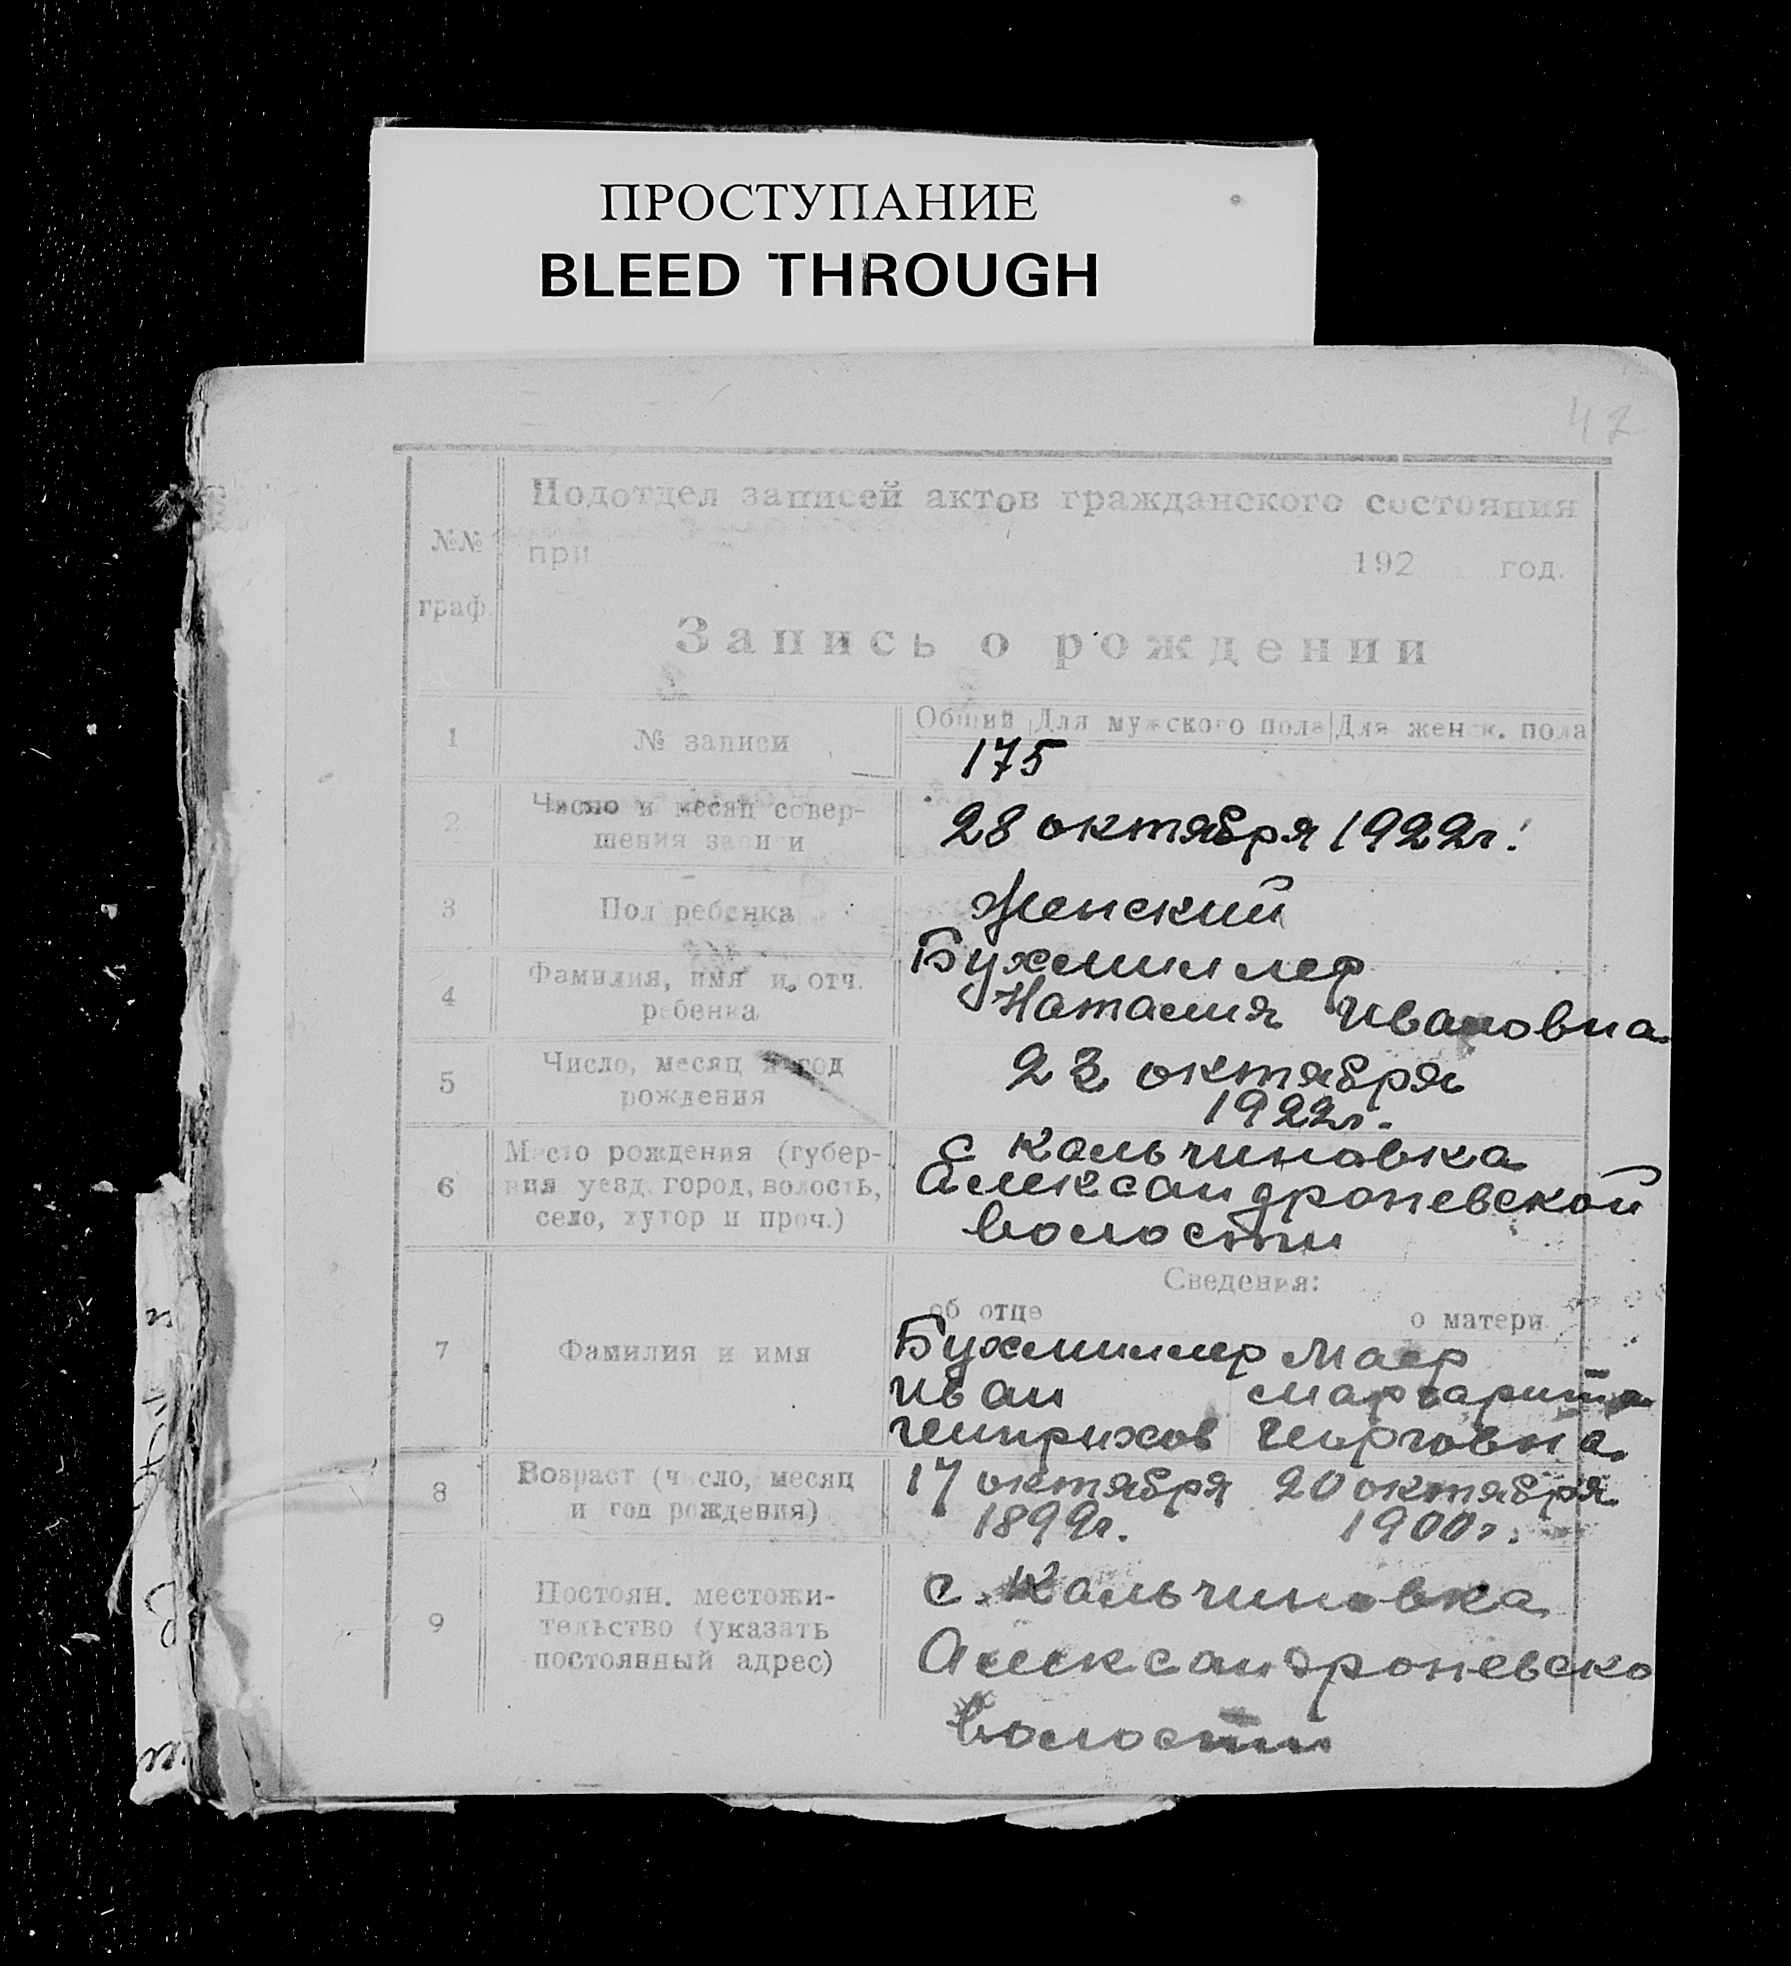 ПРОСТУПАНИЕ
BLEED THROUGH
47
Подотдел записей актов гражданского состояния
№№
граф
при 192 год.
Запись о рождении
1 № записи Общий Для мужского пола Для женск. пола
175
2 Число и месяц совер-
шения записи
28 октября 1922г.
3 Пол ребенка Женский
4 Фамилия, имя и отч.
ребенка
Бухмиллер
Наталия Ивановна
5 Число, месяц и год
рождения
23 октября
1922г.
6 Место рождения (губер-
ния уезд, город, волость,
село, хутор и проч.)
с Кальчиновка
Александроневской
волости
Сведения:
об отце о матери
7 Фамилия и имя
Бухмиллер Маер
Иван Маргарита
Генрихов Георговна
8 Возраст (число, месяц
и год рождения)
17 октября 20 октября
1899г. 1900г.
9 Постоян. местожи-
тельство (указать
постоянный адрес)
с. Кальчиновка
Александроневско
волости